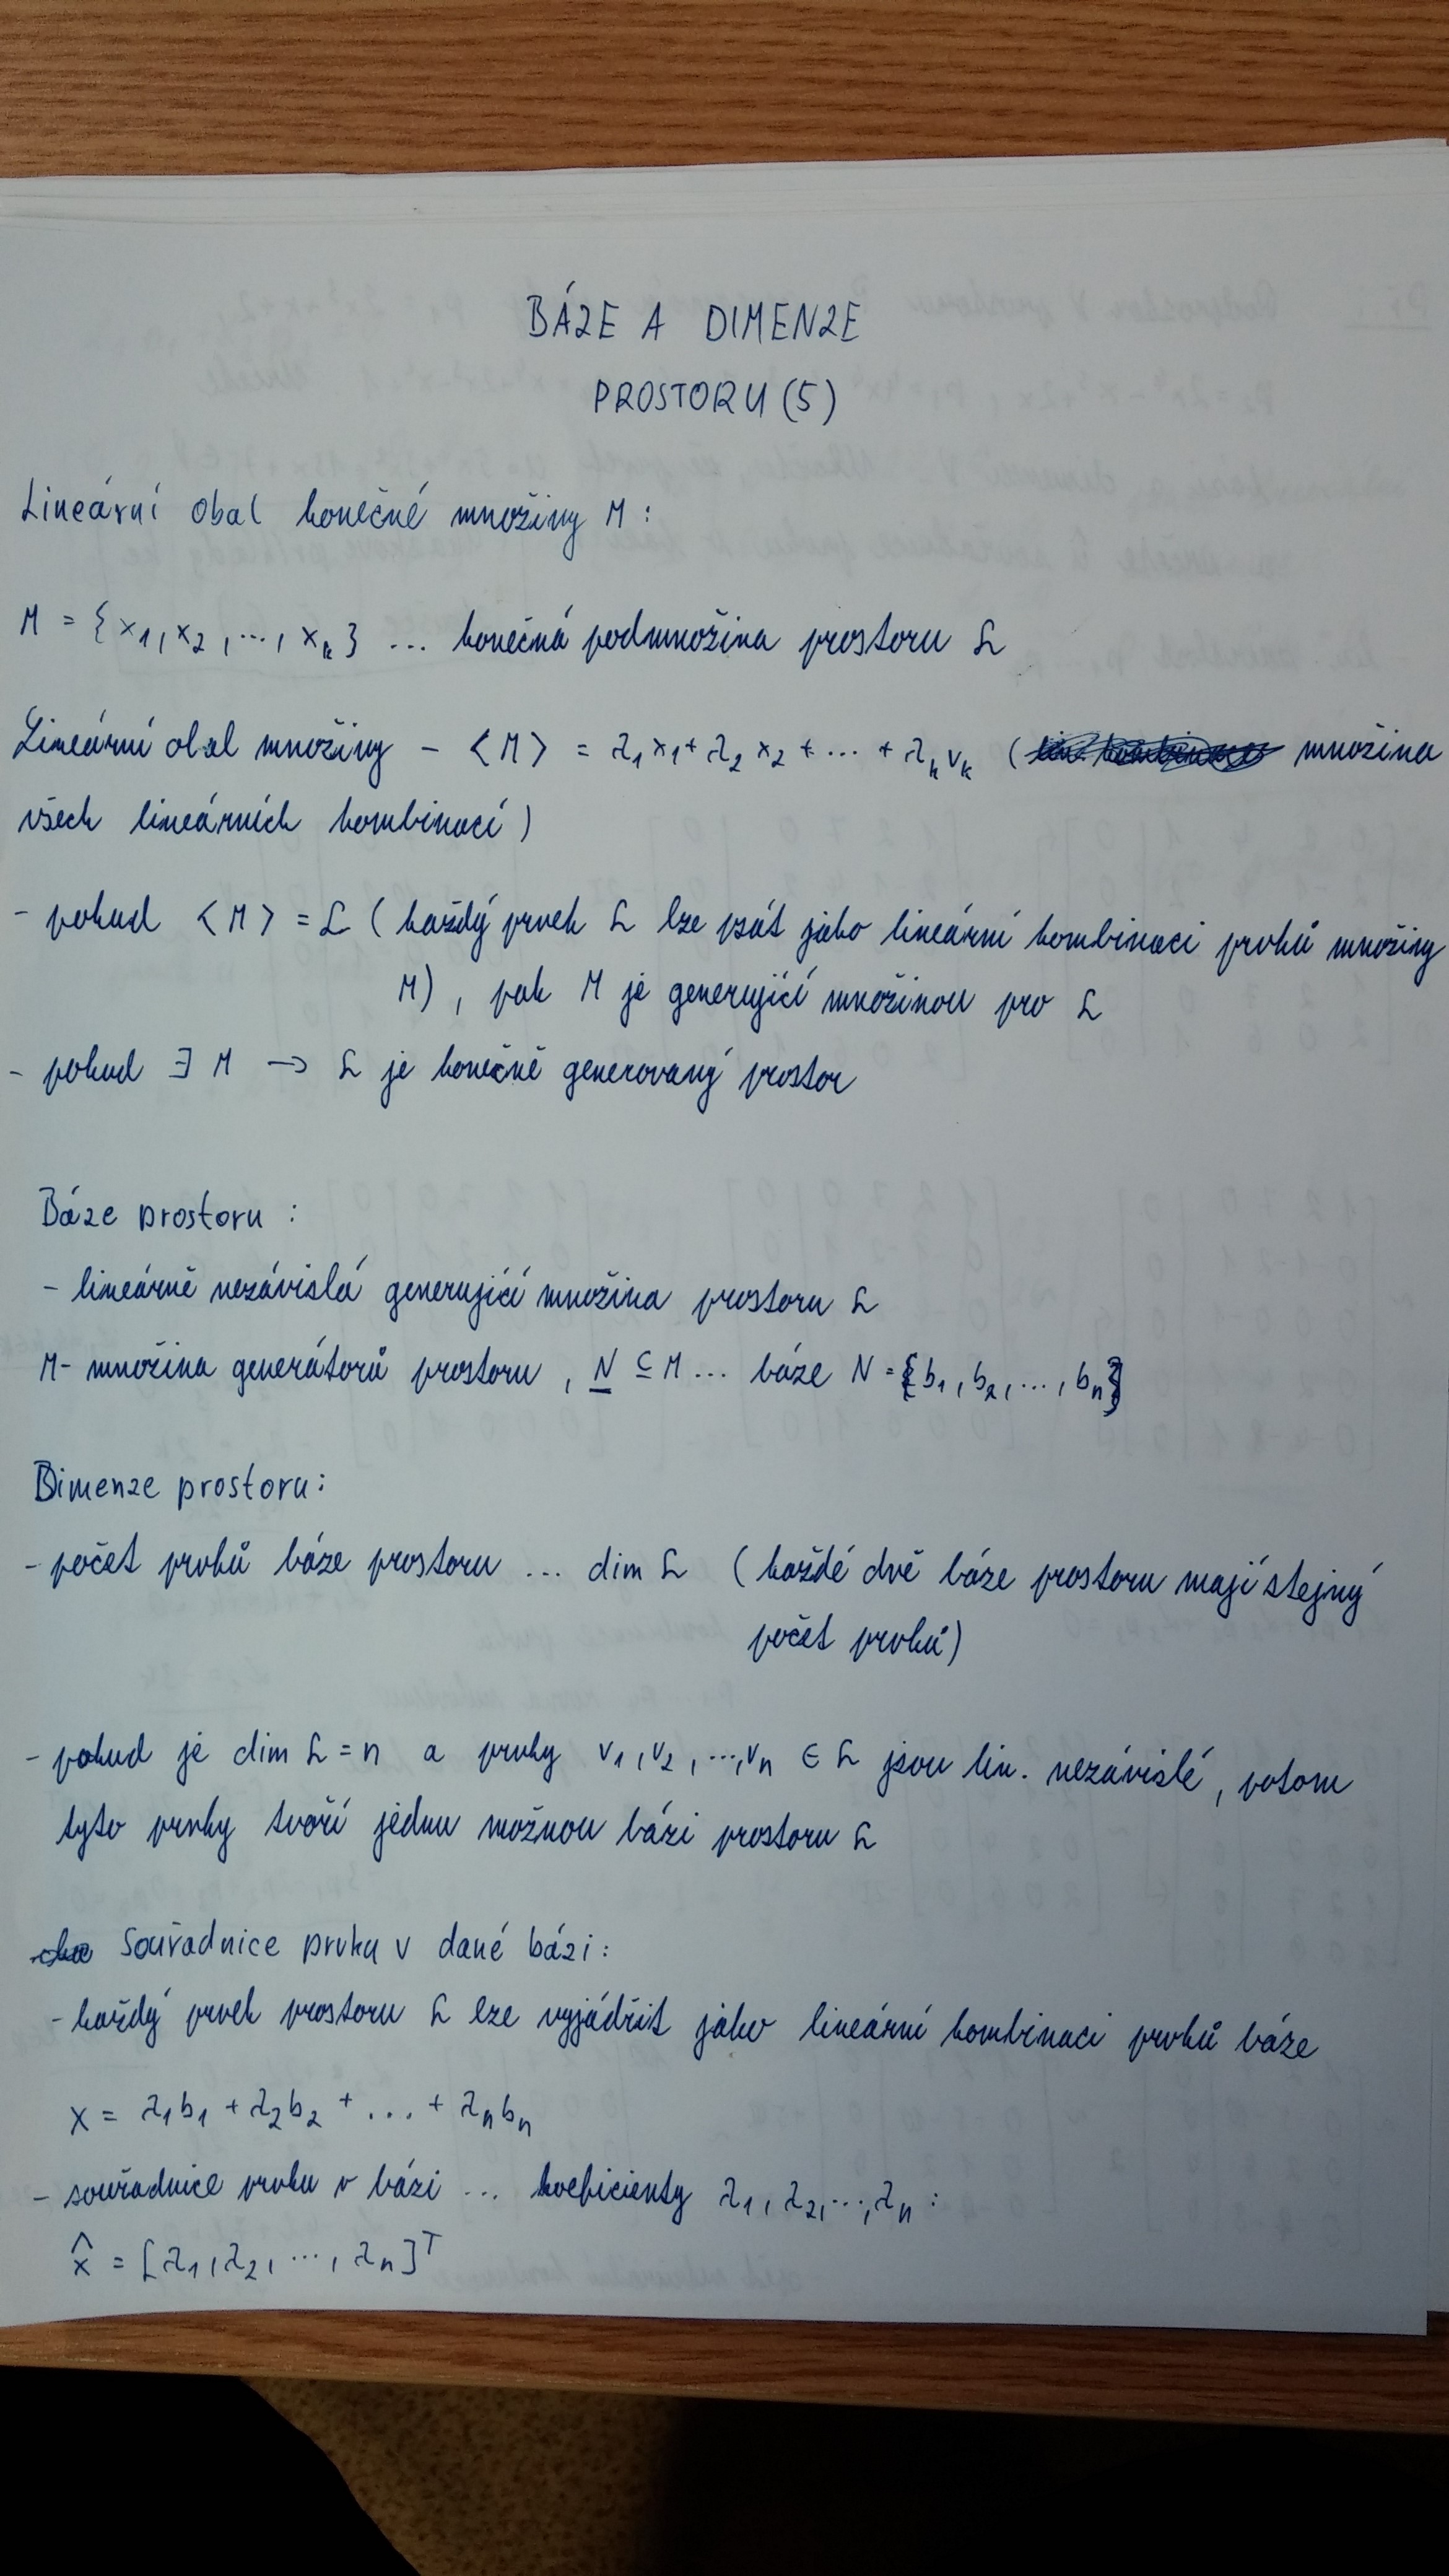 BÁZE A DIMENZE
PROSTORU (5)
Lineární obal konečné množiny M:
M = {x₁, x₂, ..., xₖ} ... konečná podmnožina prostoru L
Lineární obal množiny - <M> = λ₁x₁ + λ₂x₂ + ... + λₖvₖ ( množina
všech lineárních kombinací)
- pokud <M> = L (každý prvek L lze psát jako lineární kombinaci prvků množiny
M), pak M je generující množinou pro L
- pokud ∃ M → L je konečně generovaný prostor
Báze prostoru:
- lineárně nezávislá generující množina prostoru L
M - množina generátorů prostoru, N ⊆ M ... báze N = {b₁, b₂, ..., bₙ}
Dimenze prostoru:
- počet prvků báze prostoru ... dim L (každé dvě báze prostoru mají stejný
počet prvků)
- pokud je dim L = n a prvky v₁, v₂, ..., vₙ ∈ L jsou lin. nezávislé, potom
tyto prvky tvoří jednu možnou bázi prostoru L
Souřadnice prvku v dané bázi:
- každý prvek prostoru L lze vyjádřit jako lineární kombinaci prvků báze
x = λ₁b₁ + λ₂b₂ + ... + λₙbₙ
- souřadnice prvku v bázi ... koeficienty λ₁, λ₂, ..., λₙ:
x̂ = [λ₁, λ₂, ..., λₙ]ᵀ